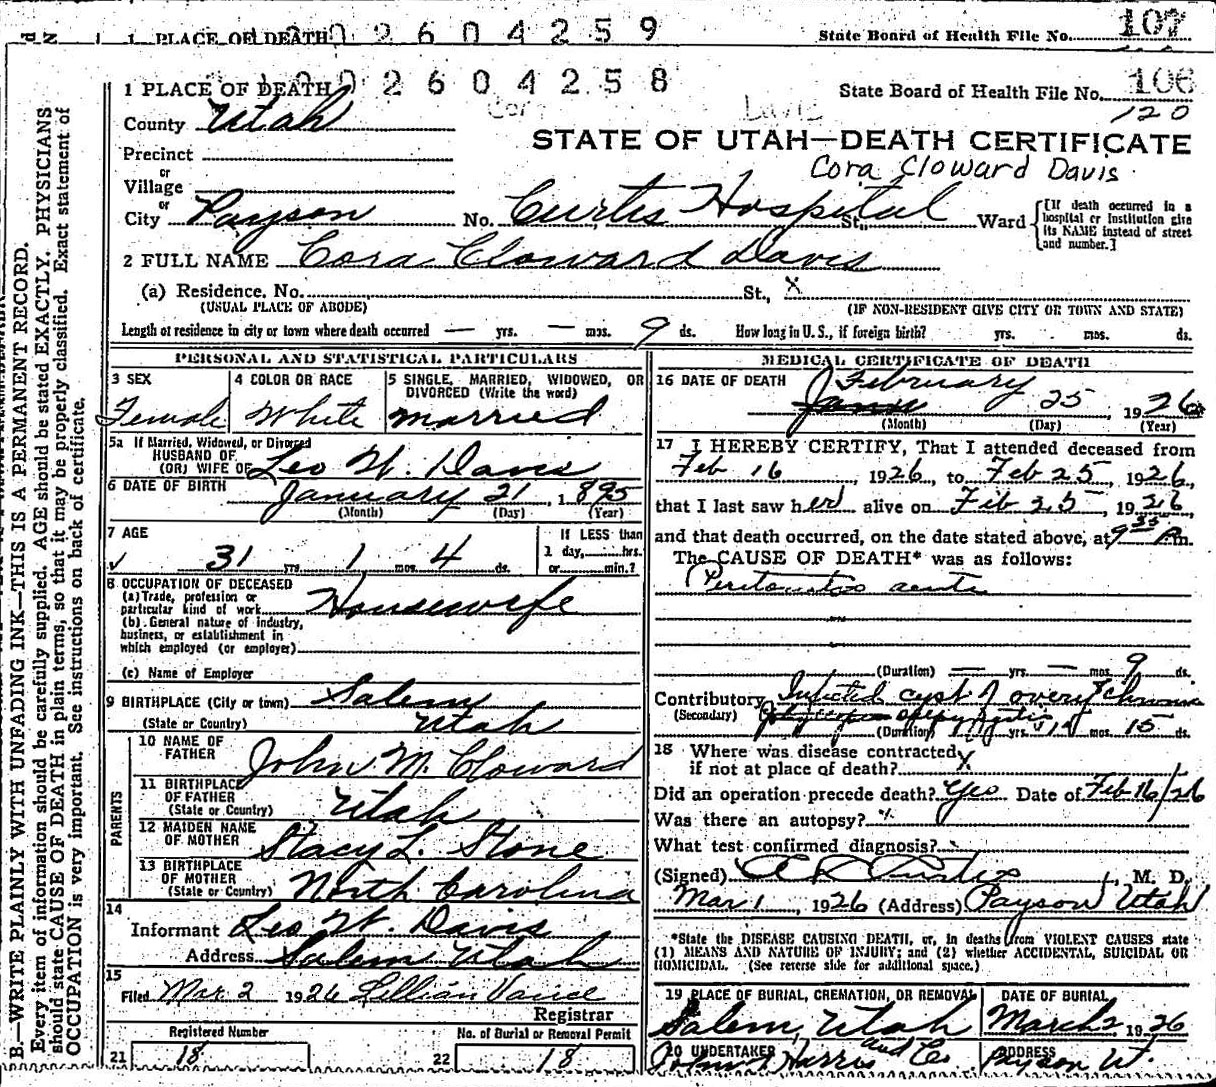 1 PLACE OF DEATH 1002604259 State Board of Health File No. 107
1 PLACE OF DEATH 1002604258 State Board of Health File No. 106
120
County Utah
Cor Davis
STATE OF UTAH—DEATH CERTIFICATE
Precinct
Cora Cloward Davis
or
Village
or
City Payson No. Curtis Hospital St., Ward [If death occurred in a hospital or institution give its NAME instead of street and number.]
2 FULL NAME Cora Cloward Davis
(a) Residence. No. St., X
(USUAL PLACE OF ABODE) (IF NON-RESIDENT GIVE CITY OR TOWN AND STATE)
Length of residence in city or town where death occurred — yrs. — mos. 9 ds. How long in U.S., if foreign birth? yrs. mos. ds.
PERSONAL AND STATISTICAL PARTICULARS
3 SEX
Female
4 COLOR OR RACE
White
5 SINGLE, MARRIED, WIDOWED, OR DIVORCED (Write the word)
married
5a If Married, Widowed, or Divorced
HUSBAND OF
(OR) WIFE OF Leo W. Davis
6 DATE OF BIRTH January 21 1895
(Month) (Day) (Year)
7 AGE
31 yrs. 1 mos. 4 ds.
If LESS than
1 day, hrs.
or min.?
8 OCCUPATION OF DECEASED
(a) Trade, profession or
particular kind of work Housewife
(b) General nature of industry,
business, or establishment in
which employed (or employer)
(c) Name of Employer
9 BIRTHPLACE (City or town) Salem
(State or Country) Utah
PARENTS
10 NAME OF FATHER John M. Cloward
11 BIRTHPLACE OF FATHER
(State or Country) Utah
12 MAIDEN NAME OF MOTHER Stacy L. Stone
13 BIRTHPLACE OF MOTHER
(State or Country) North Carolina
14
Informant Leo W. Davis
Address Salem Utah
15
Filed Mar 2 1926 Lillian Vance
Registrar
Registered Number No. of Burial or Removal Permit
21 18 22 18
MEDICAL CERTIFICATE OF DEATH
16 DATE OF DEATH February 25 1926
(Month) (Day) (Year)
17 I HEREBY CERTIFY, That I attended deceased from
Feb 16, 1926, to Feb 25, 1926,
that I last saw her alive on Feb 25, 1926,
and that death occurred, on the date stated above, at 9 35 P.m.
The CAUSE OF DEATH* was as follows:
Peritonitis acute
(Duration) — yrs. — mos. 9 ds.
Contributory Infected cyst of overy chronic
(Secondary)
(Duration) yrs. mos. 15 ds.
18 Where was disease contracted
if not at place of death? X
Did an operation precede death? Yes Date of Feb 16/26
Was there an autopsy?
What test confirmed diagnosis?
(Signed) Curtis, M. D.
Mar 1, 1926 (Address) Payson Utah
*State the DISEASE CAUSING DEATH, or, in deaths from VIOLENT CAUSES state
(1) MEANS AND NATURE OF INJURY; and (2) whether ACCIDENTAL, SUICIDAL OR
HOMICIDAL. (See reverse side for additional space.)
19 PLACE OF BURIAL, CREMATION, OR REMOVAL
Salem, Utah
DATE OF BURIAL
March 2 1926
20 UNDERTAKER
John Harris and Co
ADDRESS
Payson Ut.
B.—WRITE PLAINLY WITH UNFADING INK—THIS IS A PERMANENT RECORD.
Every item of information should be carefully supplied. AGE should be stated EXACTLY. PHYSICIANS
should state CAUSE OF DEATH in plain terms, so that it may be properly classified. Exact statement of
OCCUPATION is very important. See instructions on back of certificate.